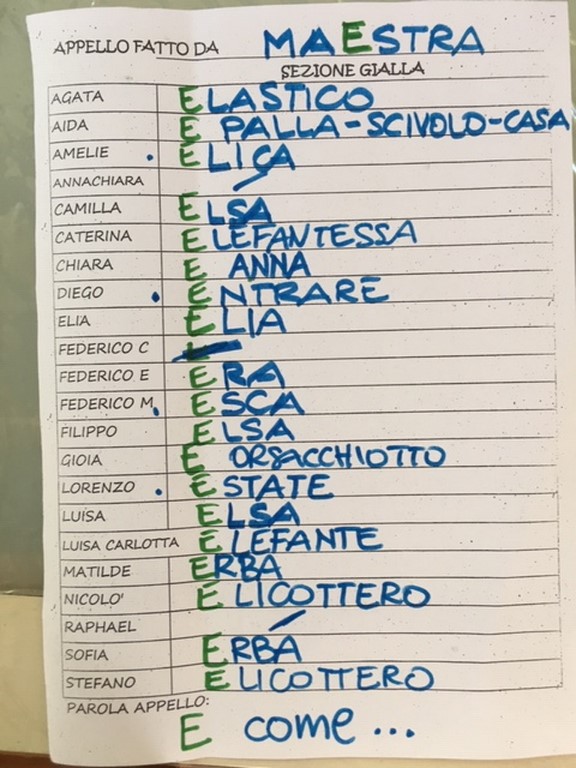 APPELLO FATTO DA MAESTRA
SEZIONE GIALLA
AGATA ELASTICO
AIDA E PALLA-SCIVOLO-CASA
AMELIE . ELICA
ANNACHIARA /
CAMILLA ELSA
CATERINA ELEFANTESSA
CHIARA E ANNA
DIEGO . ENTRARE
ELIA ELIA
FEDERICO C
FEDERICO E ERA
FEDERICO M. ESCA
FILIPPO ELSA
GIOIA E ORSACCHIOTTO
LORENZO . ESTATE
LUISA ELSA
LUISA CARLOTTA ELEFANTE
MATILDE ERBA
NICOLO' ELICOTTERO
RAPHAEL /
SOFIA ERBA
STEFANO ELICOTTERO
PAROLA APPELLO:
E come...